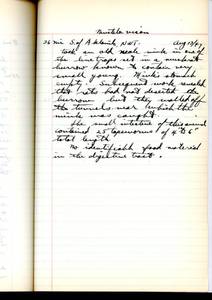 Mustela vison
36 mi S. of Aklavik, N.W.T. Aug 13/47
took an old male mink in one of
the line traps set in a muskrat
burrow known to contain very
small young. Mink's stomach
empty. Subsequent work revealed
that rats had not deserted the
burrow but they walled off
the tunnels near which the
mink was caught.
The small intestine of this animal
contained 25 tapeworms of 4 to 6"
total length
no identifiable food material
in the digestive tract.